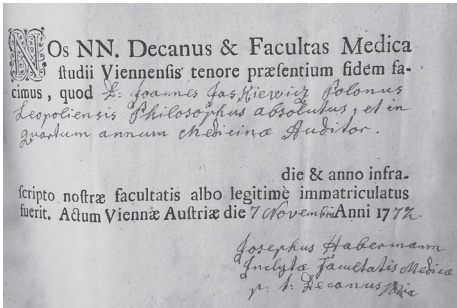 NOs NN. Decanus & Facultas Medica
ſtudii Viennenſis tenore præſentium fidem fa-
cimus, quod D: Joannes Jaskiewicz Polonus
Leopoliensis Philosophus absolutus, et in
quartum annum Medicinæ Auditor.
die & anno infra-
ſcripto noſtræ facultatis albo legitimè immatriculatus
fuerit. Actum Viennæ Auſtriæ die 7 Novembris Anni 1772.
Josephus Habermann
Inclytæ Facultatis Medicæ
p. t. Decanus